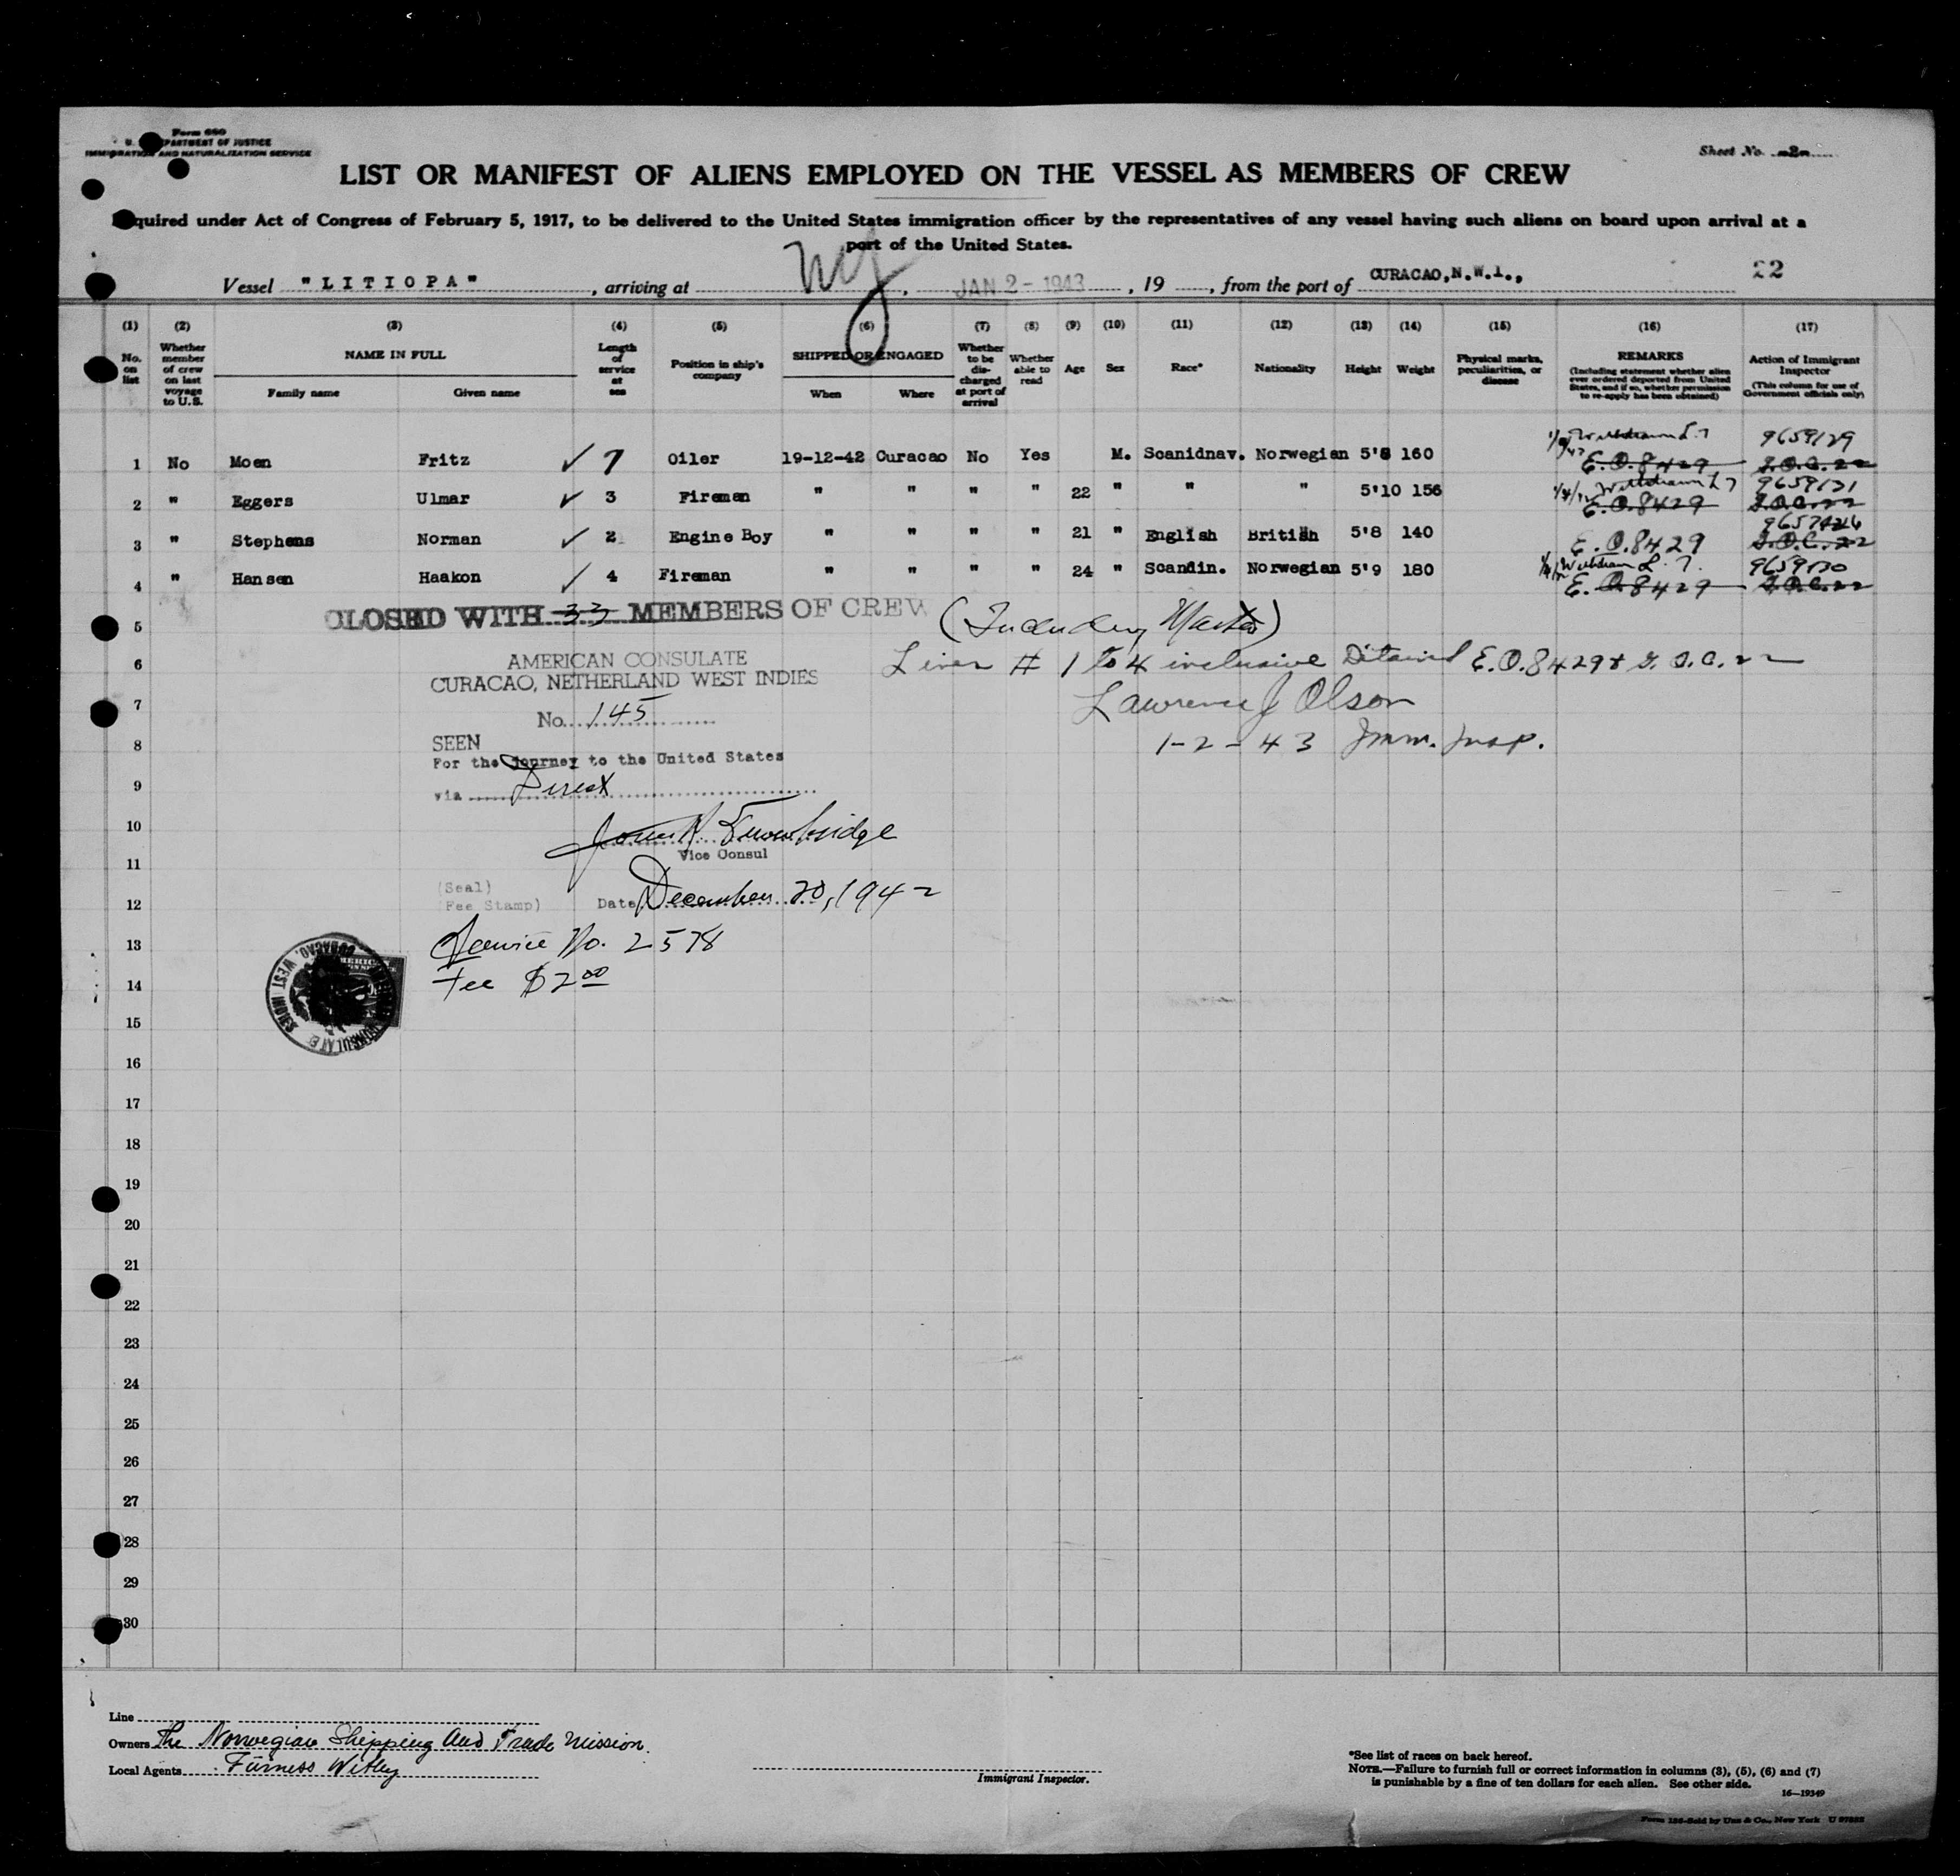 Form 680
U. S. DEPARTMENT OF JUSTICE
IMMIGRATION AND NATURALIZATION SERVICE
Sheet No. -2-
LIST OR MANIFEST OF ALIENS EMPLOYED ON THE VESSEL AS MEMBERS OF CREW
Required under Act of Congress of February 5, 1917, to be delivered to the United States immigration officer by the representatives of any vessel having such aliens on board upon arrival at a
port of the United States.
Vessel "LITIOPA", arriving at NY, JAN 2 - 1943, 19, from the port of CURACAO, N.W.I., 22
(1) (2) (3) (4) (5) (6) (7) (8) (9) (10) (11) (12) (13) (14) (15) (16) (17)
No. on list
Whether member of crew on last voyage to U.S.
NAME IN FULL
Family name Given name
Length of service at sea
Position in ship's company
SHIPPED OR ENGAGED
When Where
Whether to be discharged at port of arrival
Whether able to read
Age
Sex
Race*
Nationality
Height
Weight
Physical marks, peculiarities, or disease
REMARKS
(Including statement whether alien ever ordered deported from United States, and if so, whether permission to re-apply has been obtained)
Action of Immigrant Inspector
(This column for use of Government officials only)
Withdrawn L.7 9659129
1 No Moen Fritz ✓ 7 Oiler 19-12-42 Curacao No Yes M. Scanidnav. Norwegian 5'8 160 E.O.8429 G.O.C.22
Withdrawn L7 9659131
2 " Eggers Ulmar ✓ 3 Fireman " " " " 22 " " " 5'10 156 E.O.8429 G.O.C.22
3 " Stephens Norman ✓ 2 Engine Boy " " " " 21 " English British 5'8 140 E.O.8429 G.O.C.22
Withdrawn L.7. 9659130
4 " Hansen Haakon ✓ 4 Fireman " " " " 24 " Scandin. Norwegian 5'9 180 E.O.8429 G.O.C.22
CLOSED WITH 33 MEMBERS OF CREW (Including Master)
5
AMERICAN CONSULATE
6 Lines # 1 to 4 inclusive Detained E.O.8429 & G.O.C.22
CURACAO, NETHERLAND WEST INDIES
7 No. 145 Lawrence J Olson
8 SEEN 1-2-43 Imm. Insp.
For the Journey to the United States
9 via Direct
10
11 Vice Consul
(Seal)
12 (Fee Stamp) Date December 20, 1942
13 Service No. 2578
14 Fee $2.00
15
16
17
18
19
20
21
22
23
24
25
26
27
28
29
30
Line
Owners The Norwegian Shipping And Trade Mission.
Local Agents Furness Withy
Immigrant Inspector.
*See list of races on back hereof.
NOTE.—Failure to furnish full or correct information in columns (3), (5), (6) and (7)
is punishable by a fine of ten dollars for each alien. See other side.
16—19349